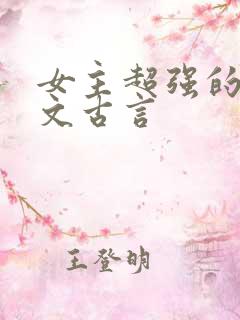 女主超强的
文古言
王登明